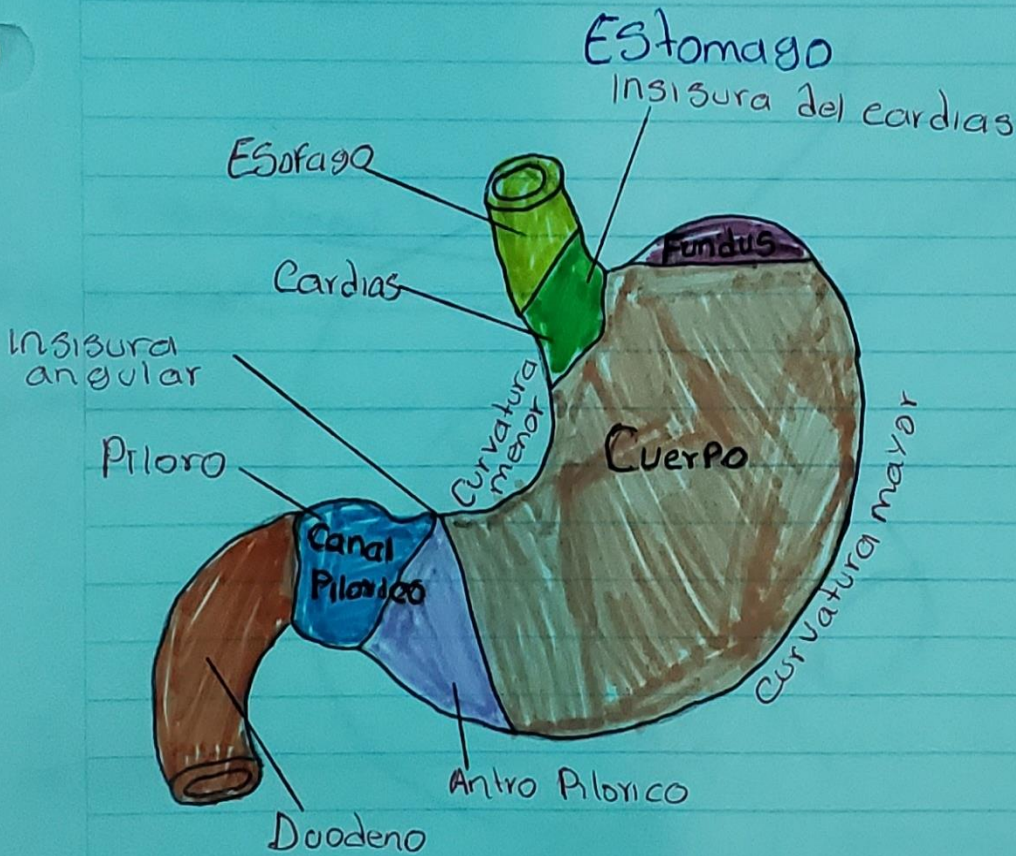 EStomago
Insisura del cardias
ESofago
Fundus
Cardias
Insisura
angular
Curvatura
menor
Cuerpo
Curvatura mayor
Piloro
Canal
Piloricó
Antro Pilorico
Duodeno